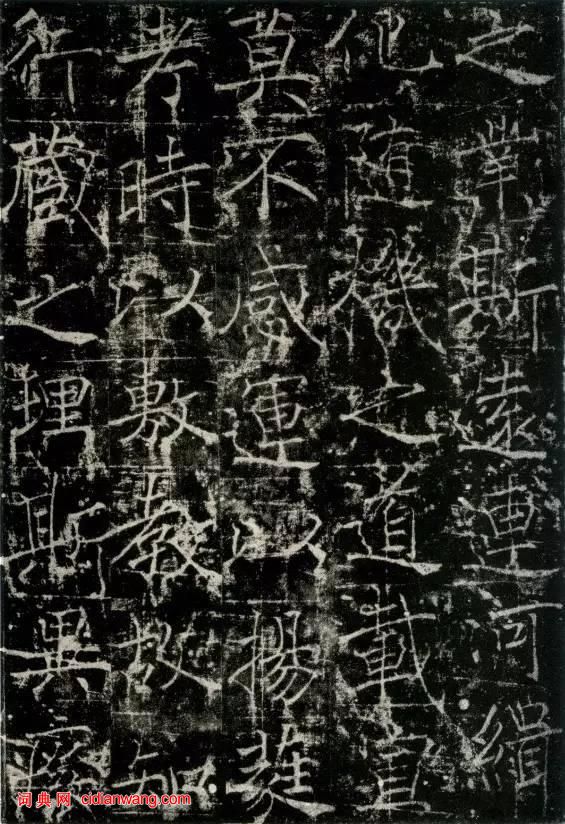 之斯遠連河緝
化隨機之道載宣
莫不感運以揚蕤
考時以敷教故知
行藏之理斯異
词典网 cidianwang.com